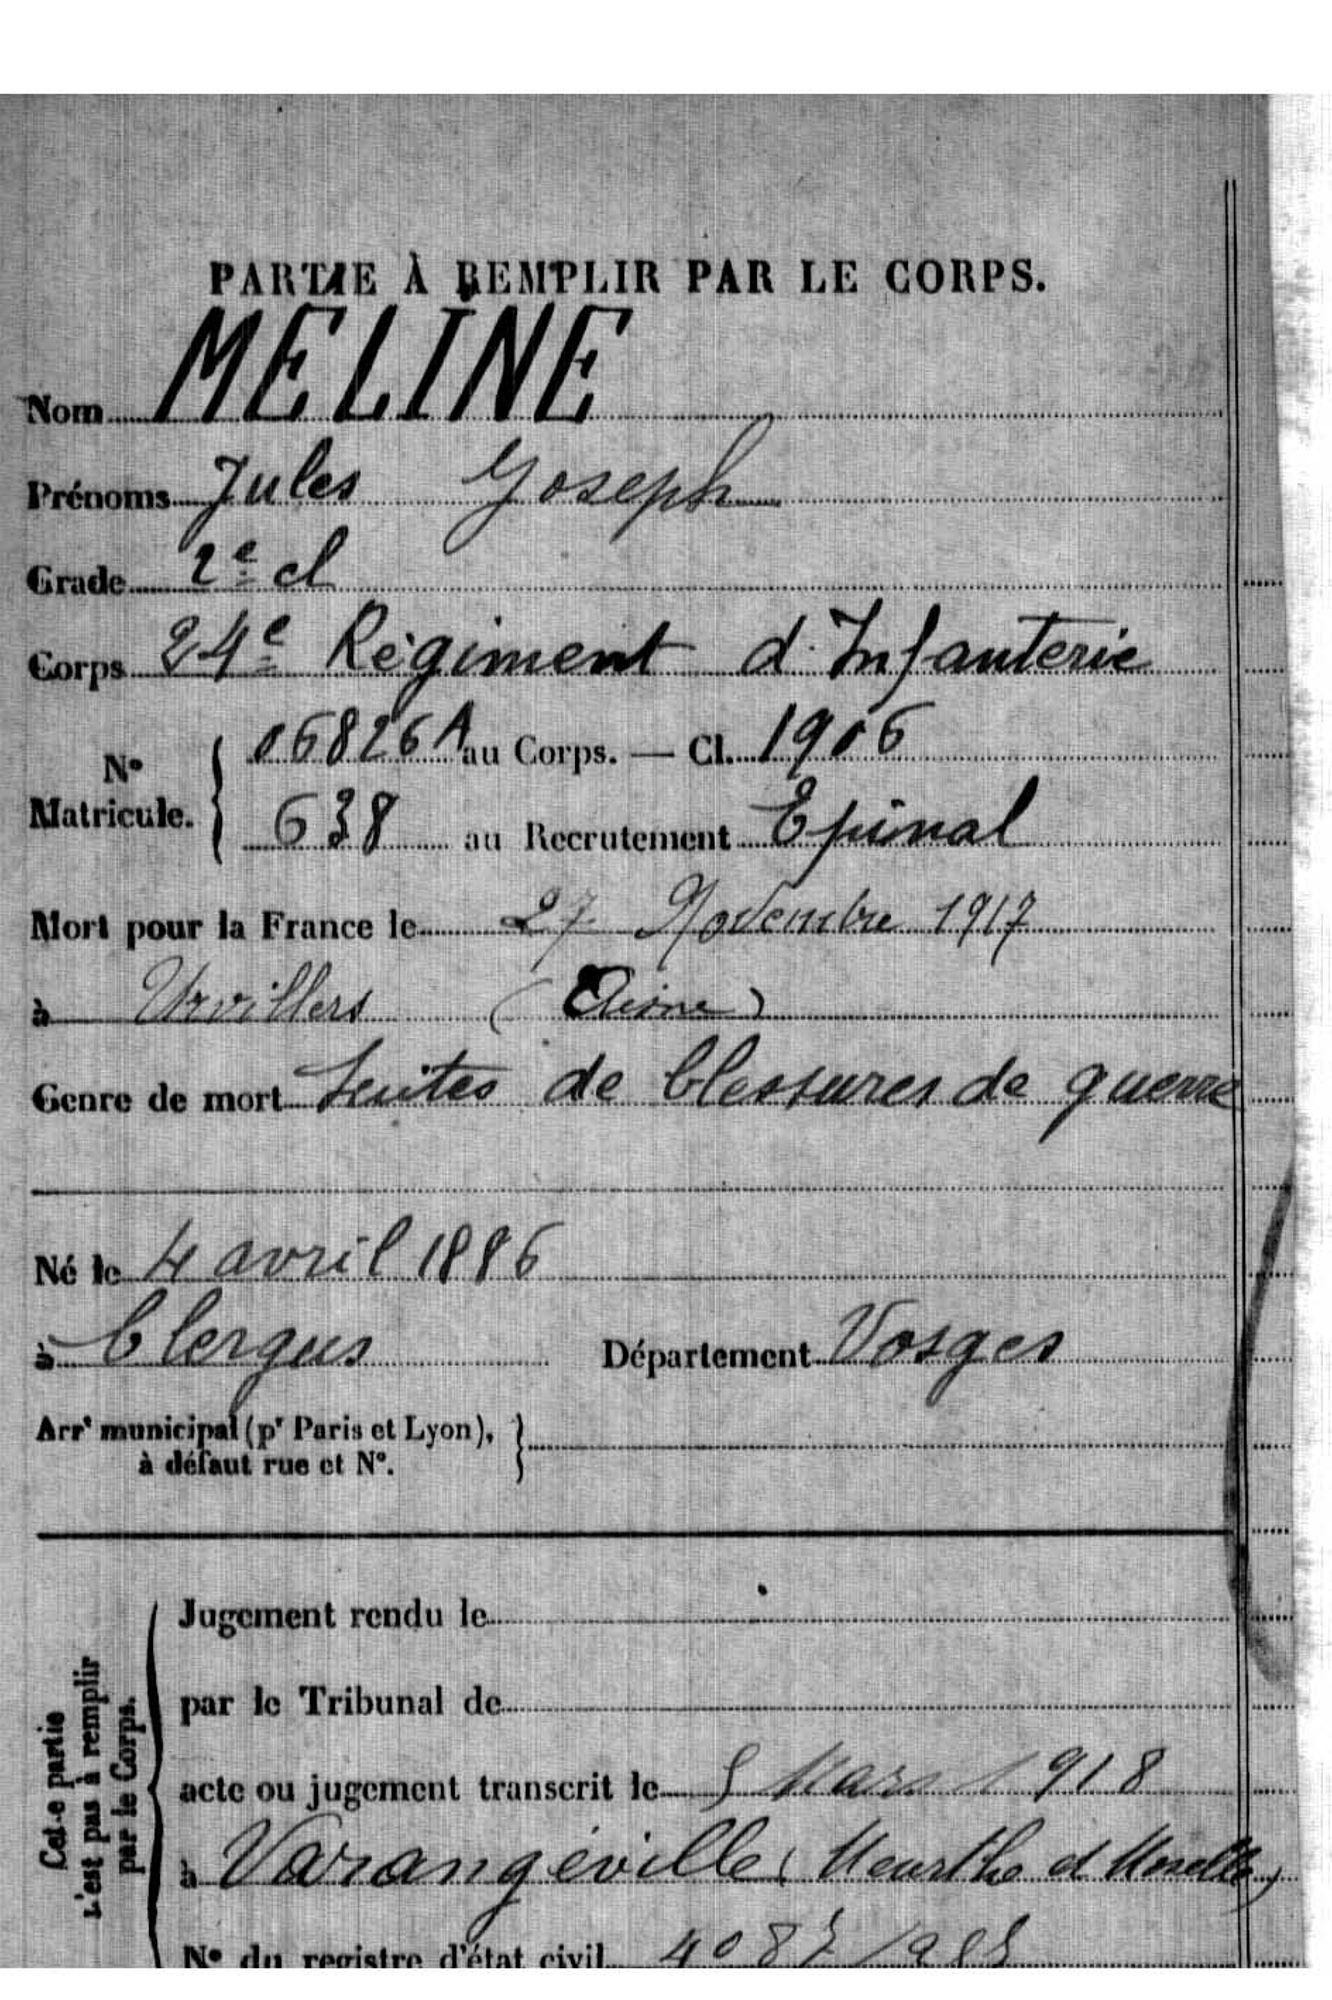 PARTIE À REMPLIR PAR LE CORPS.
Nom MELINE
Prénoms Jules Joseph
Grade 2e cl
Corps 24e Régiment d'Infanterie
No Matricule. { 06826A au Corps. — Cl. 1906
638 au Recrutement Epinal
Mort pour la France le 27 Novembre 1917
à Urvillers (Aisne)
Genre de mort Suites de blessures de guerre
Né le 4 avril 1886
à Clergus Département Vosges
Arrt municipal (pr Paris et Lyon), }
à défaut rue et No.
Cette partie
n'est pas à remplir
par le Corps.
Jugement rendu le
par le Tribunal de
acte ou jugement transcrit le 5 Mars 1918
à Varangéville (Meurthe et Moselle)
No du registre d'état civil